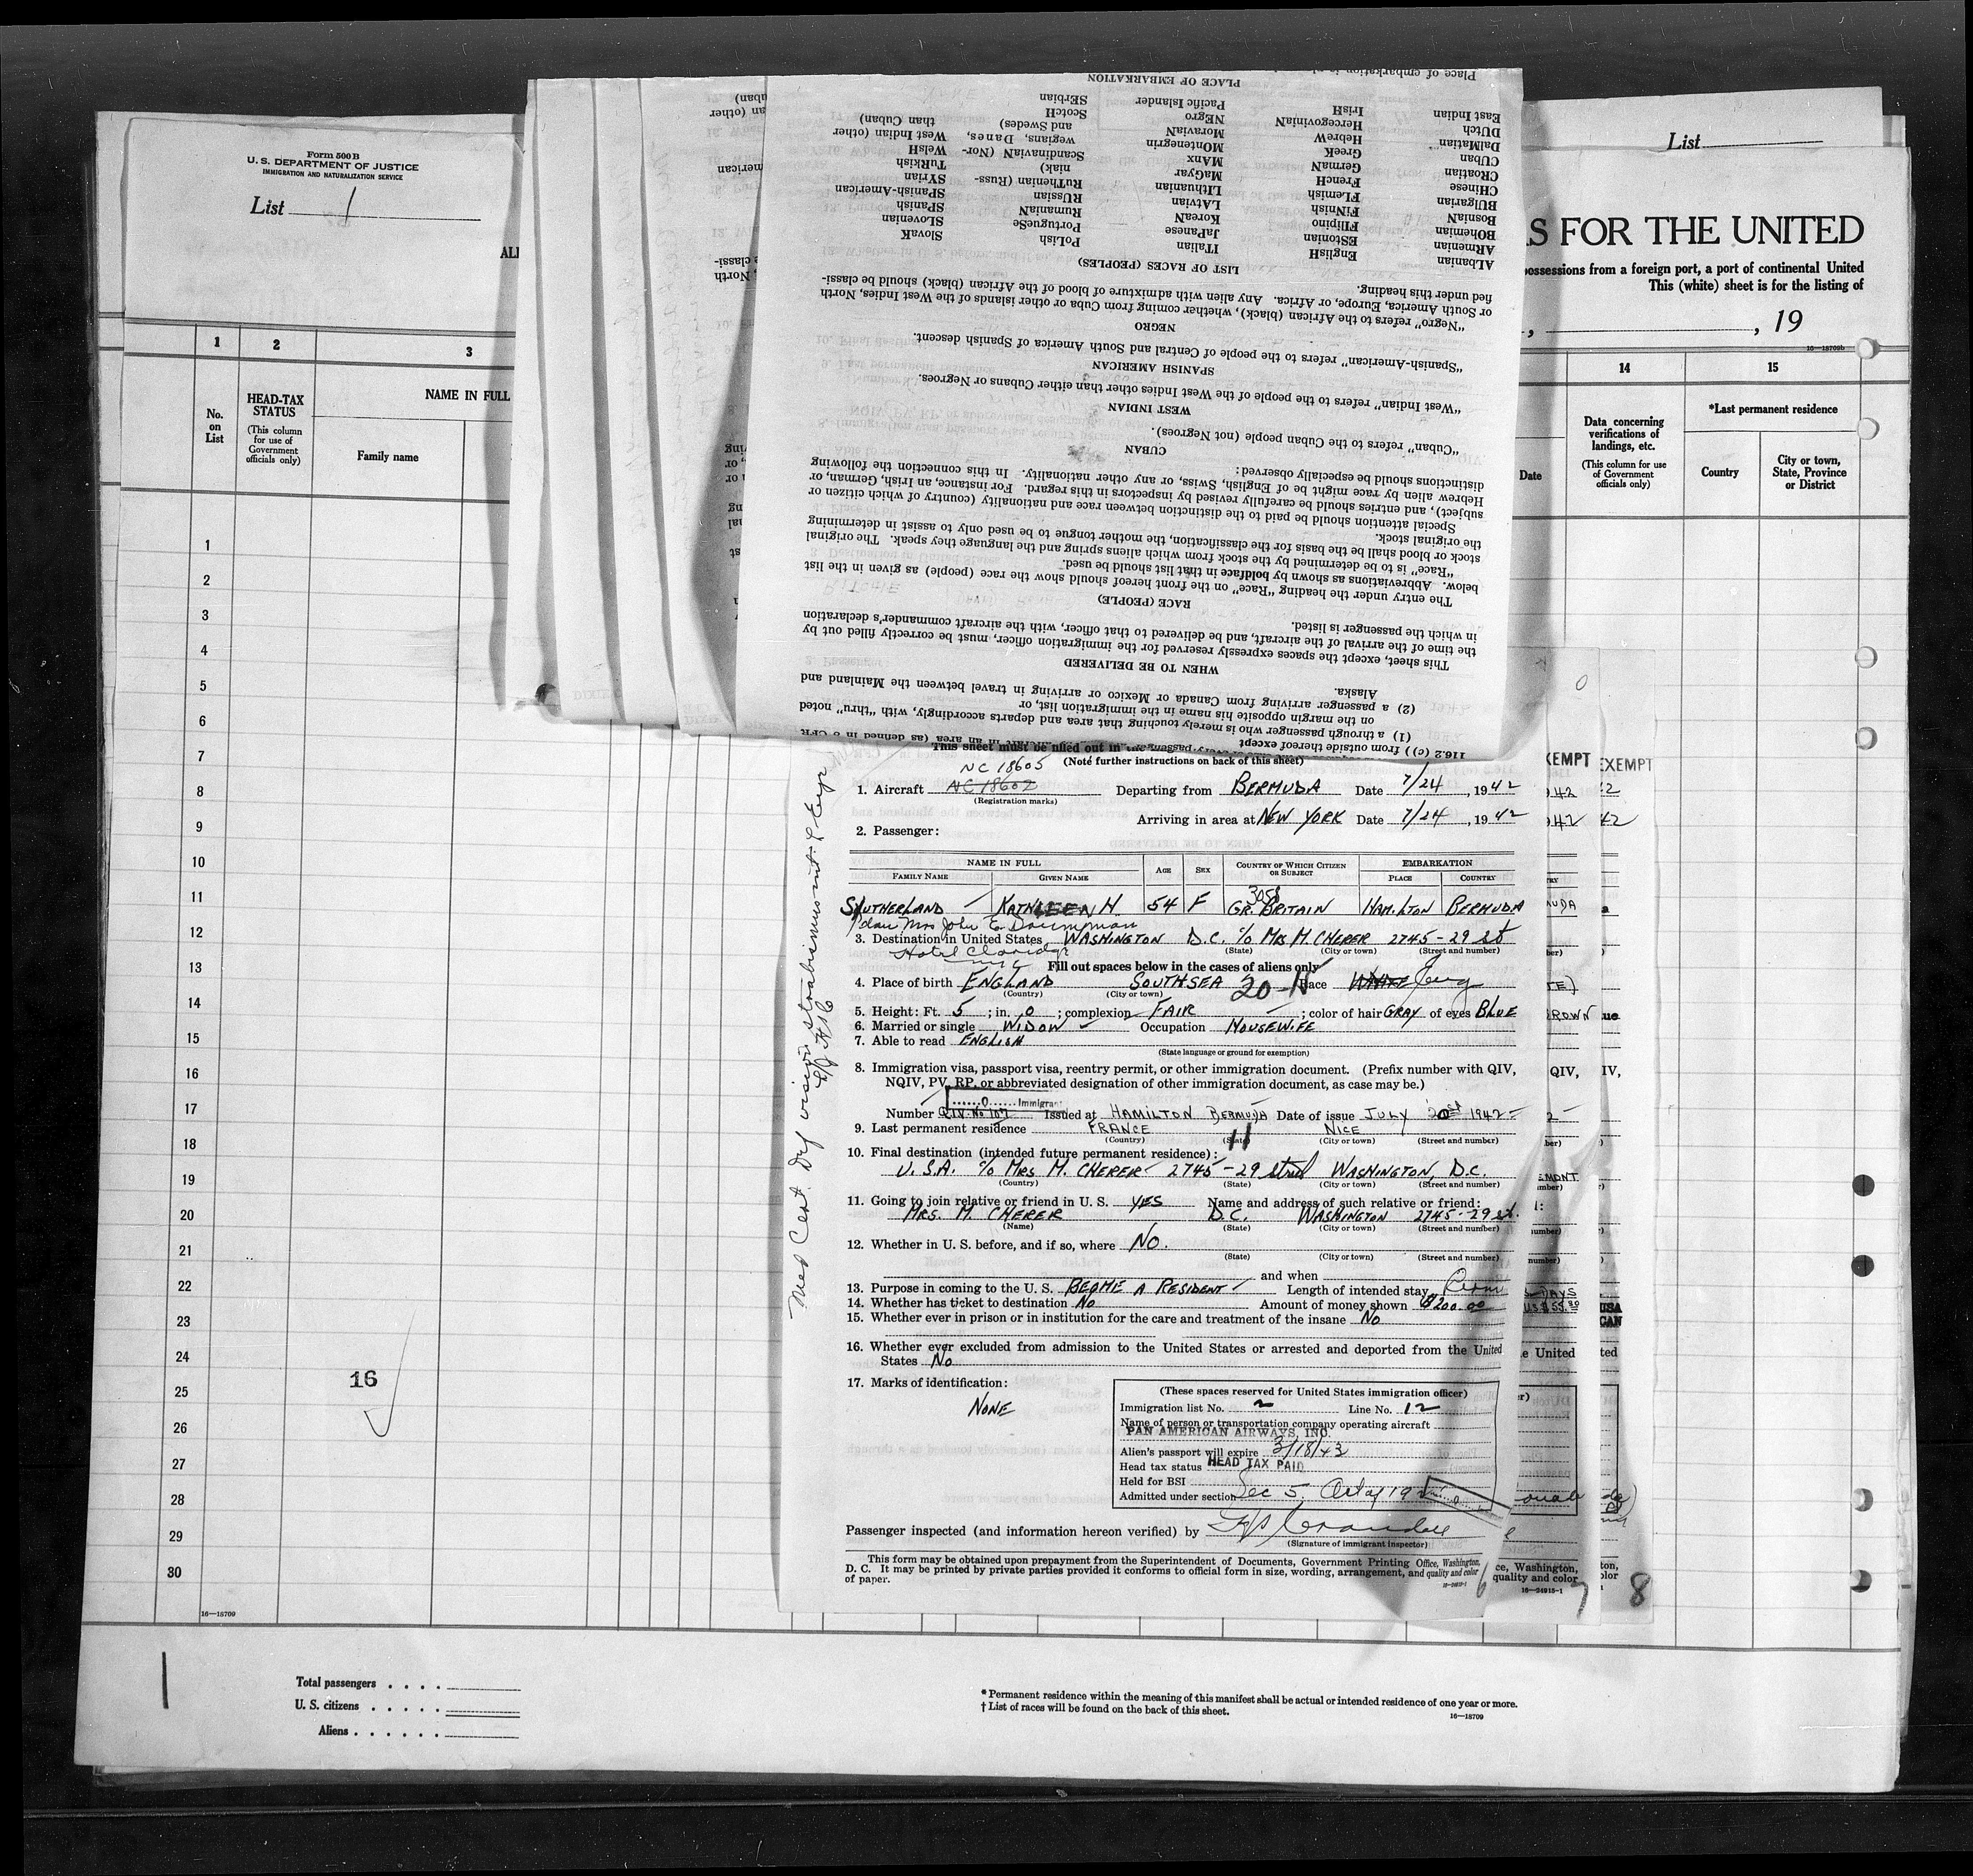 Form 500 B
U. S. DEPARTMENT OF JUSTICE
IMMIGRATION AND NATURALIZATION SERVICE
List 1
ALI
List
S FOR THE UNITED
possessions from a foreign port, a port of continental United
This (white) sheet is for the listing of
, , 19
16—18709b
1 2 3 14 15
No. on List
HEAD-TAX STATUS
(This column for use of Government officials only)
NAME IN FULL
Family name
Date
Data concerning verifications of landings, etc.
(This column for use of Government officials only)
*Last permanent residence
Country
City or town, State, Province or District
1
2
3
4
5
6
7
8
9
10
11
12
13
14
15
16
17
18
19
20
21
22
23
24
25
26
27
28
29
30
16
16—18709
Total passengers . . . .
U. S. citizens . . . . .
Aliens . . . . . .
* Permanent residence within the meaning of this manifest shall be actual or intended residence of one year or more.
† List of races will be found on the back of this sheet.
16—18709
116.2 (c)) from outside thereof except
(1) a through passenger who is merely touching that area and departs accordingly, with "thru" noted
on the margin opposite his name in the immigration list, or
(2) a passenger arriving from Canada or Mexico or arriving in travel between the Mainland and
Alaska.
WHEN TO BE DELIVERED
This sheet, except the spaces expressly reserved for the immigration officer, must be correctly filled out by
the time of the arrival of the aircraft, and be delivered to that officer, with the aircraft commander's declaration
in which the passenger is listed.
RACE (PEOPLE)
The entry under the heading "Race" on the front hereof should show the race (people) as given in the list
below. Abbreviations as shown by boldface in that list should be used.
"Race" is to be determined by the stock from which aliens spring and the language they speak. The original
stock or blood shall be the basis for the classification, the mother tongue to be used only to assist in determining
the original stock.
Special attention should be paid to the distinction between race and nationality (country of which citizen or
subject), and entries should be carefully revised by inspectors in this regard. For instance, an Irish, German, or
Hebrew alien by race might be of English, Swiss, or any other nationality. In this connection the following
distinctions should be especially observed:
CUBAN
"Cuban" refers to the Cuban people (not Negroes).
WEST INDIAN
"West Indian" refers to the people of the West Indies other than either Cubans or Negroes.
SPANISH AMERICAN
"Spanish-American" refers to the people of Central and South America of Spanish descent.
NEGRO
"Negro" refers to the African (black), whether coming from Cuba or other islands of the West Indies, North
or South America, Europe, or Africa. Any alien with admixture of blood of the African (black) should be classi-
fied under this heading.
LIST OF RACES (PEOPLES)
ALbanian EnglisH ITalian PoLish SlovaK
ARmenian EStonian JaPanese PortugueSe SLOvenian
BOhemian FIlipino KoreaN RumaniaN SPanish
BosniaN FiNnish LAtvian RUssian SPanish-American
BUlgarian FLemish LIthuanian RuThenian (Russ- SYrian
CHinese FrencH MaGyar niak) TuRkish
CRoatian GermaN MAnx ScandinaviaN (Nor- WelsH
CUban GreeK MOntenegrin wegians, Danes, West Indian (other
DalMatian HebreW MoraviaN and Swedes) than Cuban)
DUtch HercegoviniaN NEgro ScotcH
East Indian IrisH Pacific Islander SErbian
PLACE OF EMBARKATION
This sheet must be filled out in
(Note further instructions on back of this sheet)
NC 18605
1. Aircraft NC 18602 Departing from BERMUDA Date 7/24, 1942
(Registration marks)
Arriving in area at NEW YORK Date 7/24, 1942
2. Passenger:
NAME IN FULL AGE SEX COUNTRY OF WHICH CITIZEN OR SUBJECT EMBARKATION
FAMILY NAME GIVEN NAME PLACE COUNTRY
SUTHERLAND KATHLEEN H. 54 F GR. BRITAIN HAMILTON BERMUDA
3. Destination in United States WASHINGTON D.C. % MRS M. CHERER 2745-29 St
(State) (City or town) (Street and number)
Fill out spaces below in the cases of aliens only
4. Place of birth ENGLAND SOUTHSEA Race WHITE Eng
(Country) (City or town)
5. Height: Ft. 5; in. 0; complexion FAIR; color of hair GRAY of eyes BLUE
6. Married or single WIDOW Occupation HOUSEWIFE
7. Able to read ENGLISH
(State language or ground for exemption)
8. Immigration visa, passport visa, reentry permit, or other immigration document. (Prefix number with QIV,
NQIV, PV, RP, or abbreviated designation of other immigration document, as case may be.)
......0...... Immigrant
Number QIV. No 107 Issued at HAMILTON BERMUDA Date of issue JULY 20st 1942
9. Last permanent residence FRANCE NICE
(Country) (State) (City or town) (Street and number)
10. Final destination (intended future permanent residence):
U.S.A. % MRS M. CHERER 2745-29 Street WASHINGTON, D.C.
(Country) (State) (City or town) (Street and number)
11. Going to join relative or friend in U. S. YES Name and address of such relative or friend:
MRS. M. CHERER D.C. WASHINGTON 2745-29 St.
(Name) (State) (City or town) (Street and number)
12. Whether in U. S. before, and if so, where NO.
(State) (City or town) (Street and number)
and when
13. Purpose in coming to the U. S. BECOME A RESIDENT Length of intended stay Perm
14. Whether has ticket to destination NO Amount of money shown $200.00
15. Whether ever in prison or in institution for the care and treatment of the insane NO
16. Whether ever excluded from admission to the United States or arrested and deported from the United
States NO
17. Marks of identification:
NONE
(These spaces reserved for United States immigration officer)
Immigration list No. 2 Line No. 12
Name of person or transportation company operating aircraft
PAN AMERICAN AIRWAYS, INC.
Alien's passport will expire 3/18/43
Head tax status HEAD TAX PAID
Held for BSI
Admitted under section Sec 5. Act of 19
Passenger inspected (and information hereon verified) by
(Signature of immigrant inspector)
This form may be obtained upon prepayment from the Superintendent of Documents, Government Printing Office, Washington,
D. C. It may be printed by private parties provided it conforms to official form in size, wording, arrangement, and quality and color
of paper.
6 7 8